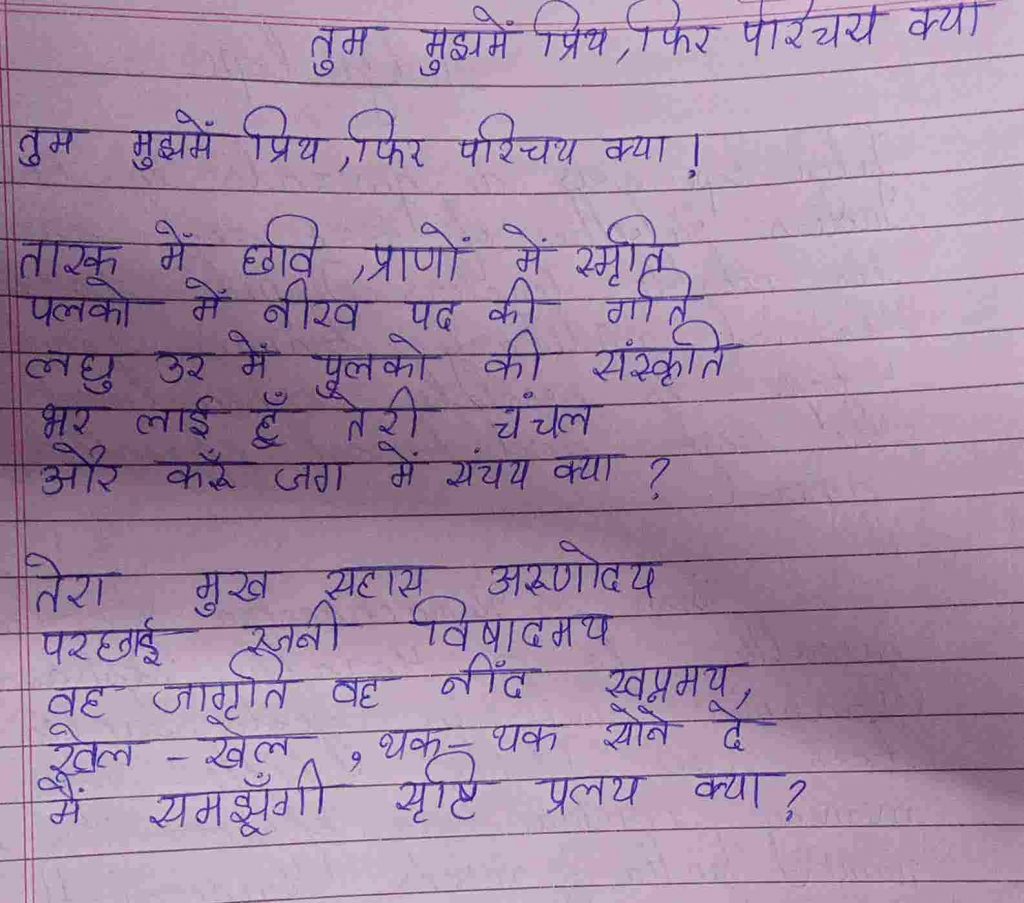 तुम मुझमें प्रिय, फिर परिचय क्या
तुम मुझमें प्रिय, फिर परिचय क्या !
तारक में छवि, प्राणों में स्मृति
पलको में नीरव पद की गति
लघु उर में पुलको की संस्कृति
भर लाई हूँ तेरी चंचल
और करूँ जग में संचय क्या ?
तेरा मुख सहास अरूणोदय
परछाई रजनी विषादमय
वह जागृति वह नींद स्वप्नमय,
खेल - खेल, थक - थक सोने दे
में समझूँगी सृष्टि प्रलय क्या ?